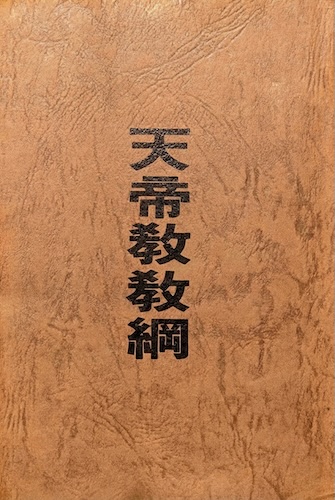 天帝教教綱